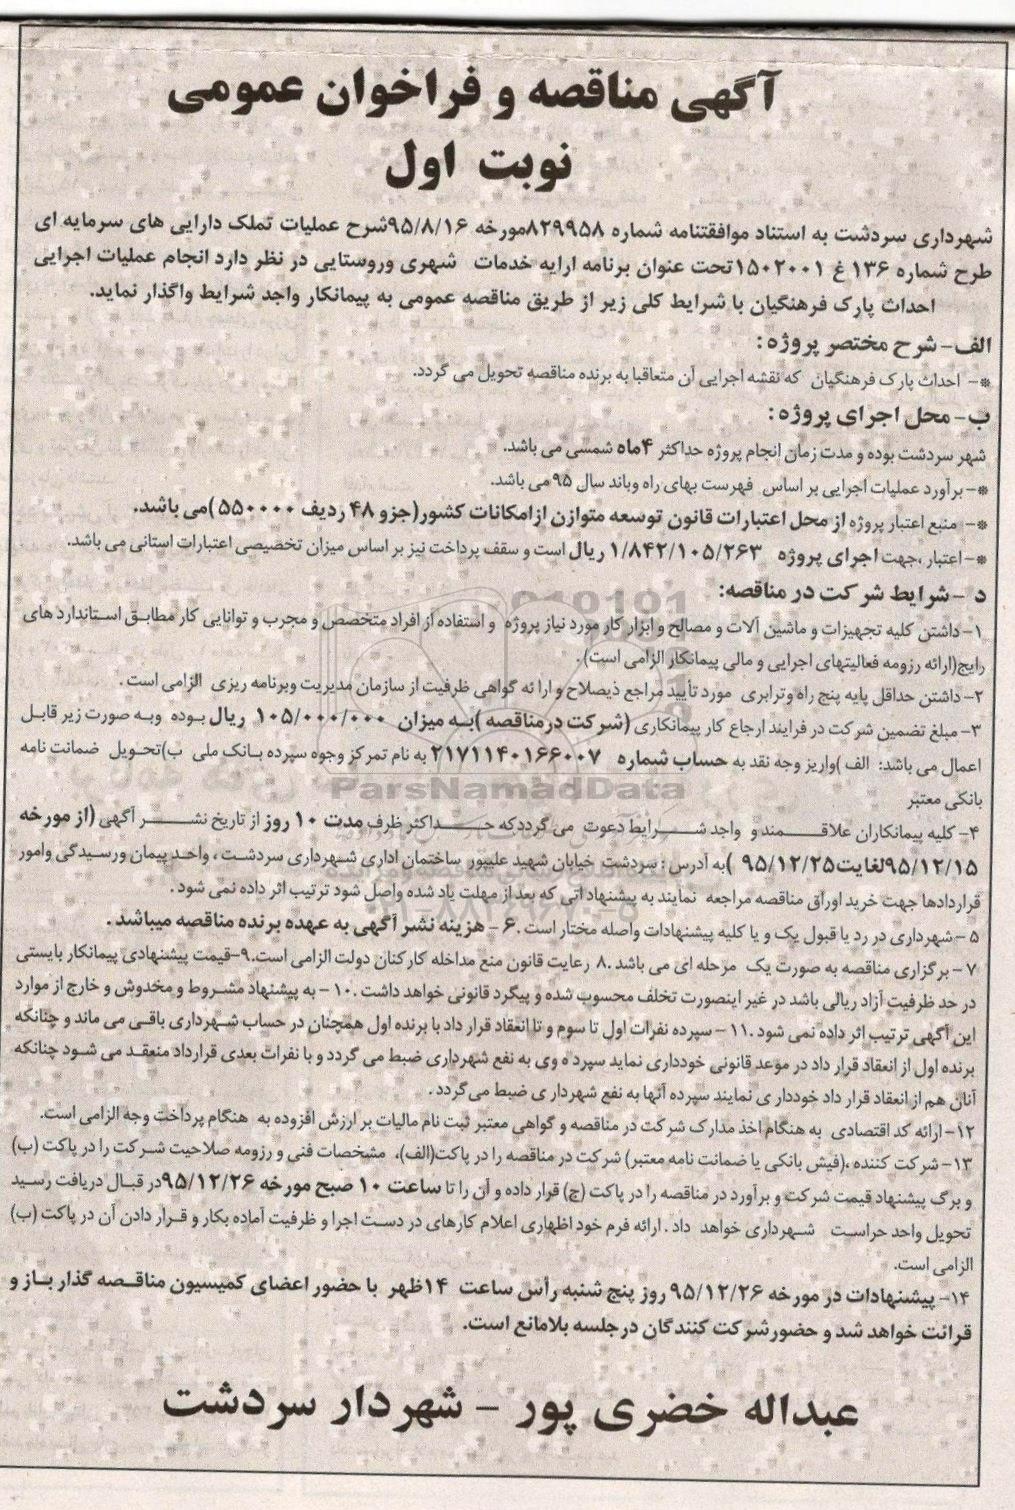 آگهی مناقصه و فراخوان عمومی
نوبت اول
شهرداری سردشت به استناد موافقتنامه شماره ۸۲۹۹۵۸مورخه ۹۵/۸/۱۶شرح عملیات تملک دارایی های سرمایه ای
طرح شماره ۱۳۶ غ ۱۵۰۲۰۰۱تحت عنوان برنامه ارایه خدمات شهری وروستایی در نظر دارد انجام عملیات اجرایی
احداث پارک فرهنگیان با شرایط کلی زیر از طریق مناقصه عمومی به پیمانکار واجد شرایط واگذار نماید.
الف- شرح مختصر پروژه :
*- احداث پارک فرهنگیان که نقشه اجرایی آن متعاقبا به برنده مناقصه تحویل می گردد.
ب- محل اجرای پروژه :
شهر سردشت بوده و مدت زمان انجام پروژه حداکثر ۴ماه شمسی می باشد.
*- برآورد عملیات اجرایی بر اساس فهرست بهای راه وباند سال ۹۵ می باشد.
*- منبع اعتبار پروژه از محل اعتبارات قانون توسعه متوازن ازامکانات کشور(جزو ۴۸ ردیف ۵۵۰۰۰۰ )می باشد.
*- اعتبار ،جهت اجرای پروژه ۱/۸۴۲/۱۰۵/۲۶۳ ریال است و سقف پرداخت نیز بر اساس میزان تخصیصی اعتبارات استانی می باشد.
د -شرایط شرکت در مناقصه:
۱- داشتن کلیه تجهیزات و ماشین آلات و مصالح و ابزار کار مورد نیاز پروژه و استفاده از افراد متخصص و مجرب و توانایی کار مطابق استاندارد های
رایج(ارائه رزومه فعالیتهای اجرایی و مالی پیمانکار الزامی است) .
۲- داشتن حداقل پایه پنج راه وترابری مورد تأیید مراجع ذیصلاح و ارا ئه گواهی ظرفیت از سازمان مدیریت وبرنامه ریزی الزامی است .
۳- مبلغ تضمین شرکت در فرایند ارجاع کار پیمانکاری (شرکت درمناقصه )به میزان ۱۰۵/۰۰۰/۰۰۰ ریال بوده وبه صورت زیر قابل
اعمال می باشد: الف )واریز وجه نقد به حساب شماره ۲۱۷۱۱۴۰۱۶۶۰۰۷ به نام تمرکز وجوه سپرده بانک ملی ب)تحویل ضمانت نامه
بانکی معتبر
۴- کلیه پیمانکاران علاقمند و واجد شرایط دعوت می گرددکه حداکثر ظرف مدت ۱۰ روز از تاریخ نشر آگهی (از مورخه
۹۵/۱۲/۱۵لغایت۹۵/۱۲/۲۵ )به آدرس : سردشت خیابان شهید علیپور ساختمان اداری شهرداری سردشت ، واحد پیمان ورسیدگی وامور
قراردادها جهت خرید اوراق مناقصه مراجعه نمایند به پیشنهاد اتی که بعد از مهلت یاد شده واصل شود ترتیب اثر داده نمی شود .
۵ -شهرداری در رد یا قبول یک و یا کلیه پیشنهادات واصله مختار است .۶ - هزینه نشر آگهی به عهده برنده مناقصه میباشد .
۷ - برگزاری مناقصه به صورت یک مرحله ای می باشد .۸ رعایت قانون منع مداخله کارکنان دولت الزامی است.۹-قیمت پیشنهادی پیمانکار بایستی
در حد ظرفیت آزاد ریالی باشد در غیر اینصورت تخلف محسوب شده و پیگرد قانونی خواهد داشت .۱۰ - به پیشنهاد مشروط و مخدوش و خارج از موارد
این آگهی ترتیب اثر داده نمی شود .۱۱ - سپرده نفرات اول تا سوم و تا انعقاد قرار داد با برنده اول همچنان در حساب شهرداری باقی می ماند و چنانکه
برنده اول از انعقاد قرار داد در موعد قانونی خودداری نماید سپرد ه وی به نفع شهرداری ضبط می گردد و با نفرات بعدی قرارداد منعقد می شود چنانکه
آنان هم از انعقاد قرار داد خوددار ی نمایند سپرده آنها به نفع شهردار ی ضبط می گردد .
۱۲-ارائه کد اقتصادی به هنگام اخذ مدارک شرکت در مناقصه و گواهی معتبر ثبت نام مالیات بر ارزش افزوده به هنگام پرداخت وجه الزامی است.
۱۳- شرکت کننده ،(فیش بانکی یا ضمانت نامه معتبر) شرکت در مناقصه را در پاکت(الف)، مشخصات فنی و رزومه صلاحیت شرکت را در پاکت (ب)
و برگ پیشنهاد قیمت شرکت و برآورد در مناقصه را در پاکت (ج) قرار داده و آن را تا ساعت ۱۰ صبح مورخه ۹۵/۱۲/۲۶در قبال دریافت رسید
تحویل واحد حراست شهرداری خواهد داد . ارائه فرم خود اظهاری اعلام کارهای در دست اجرا و ظرفیت آماده بکار و قرار دادن آن در پاکت (ب)
الزامی است.
۱۴- پیشنهادات در مورخه ۹۵/۱۲/۲۶ روز پنج شنبه رأس ساعت ۱۴ظهر با حضور اعضای کمیسیون مناقصه گذار باز و
قرائت خواهد شد و حضورشرکت کنندگان درجلسه بلامانع است.
عبداله خضری پور - شهردار سردشت
ParsNamadData